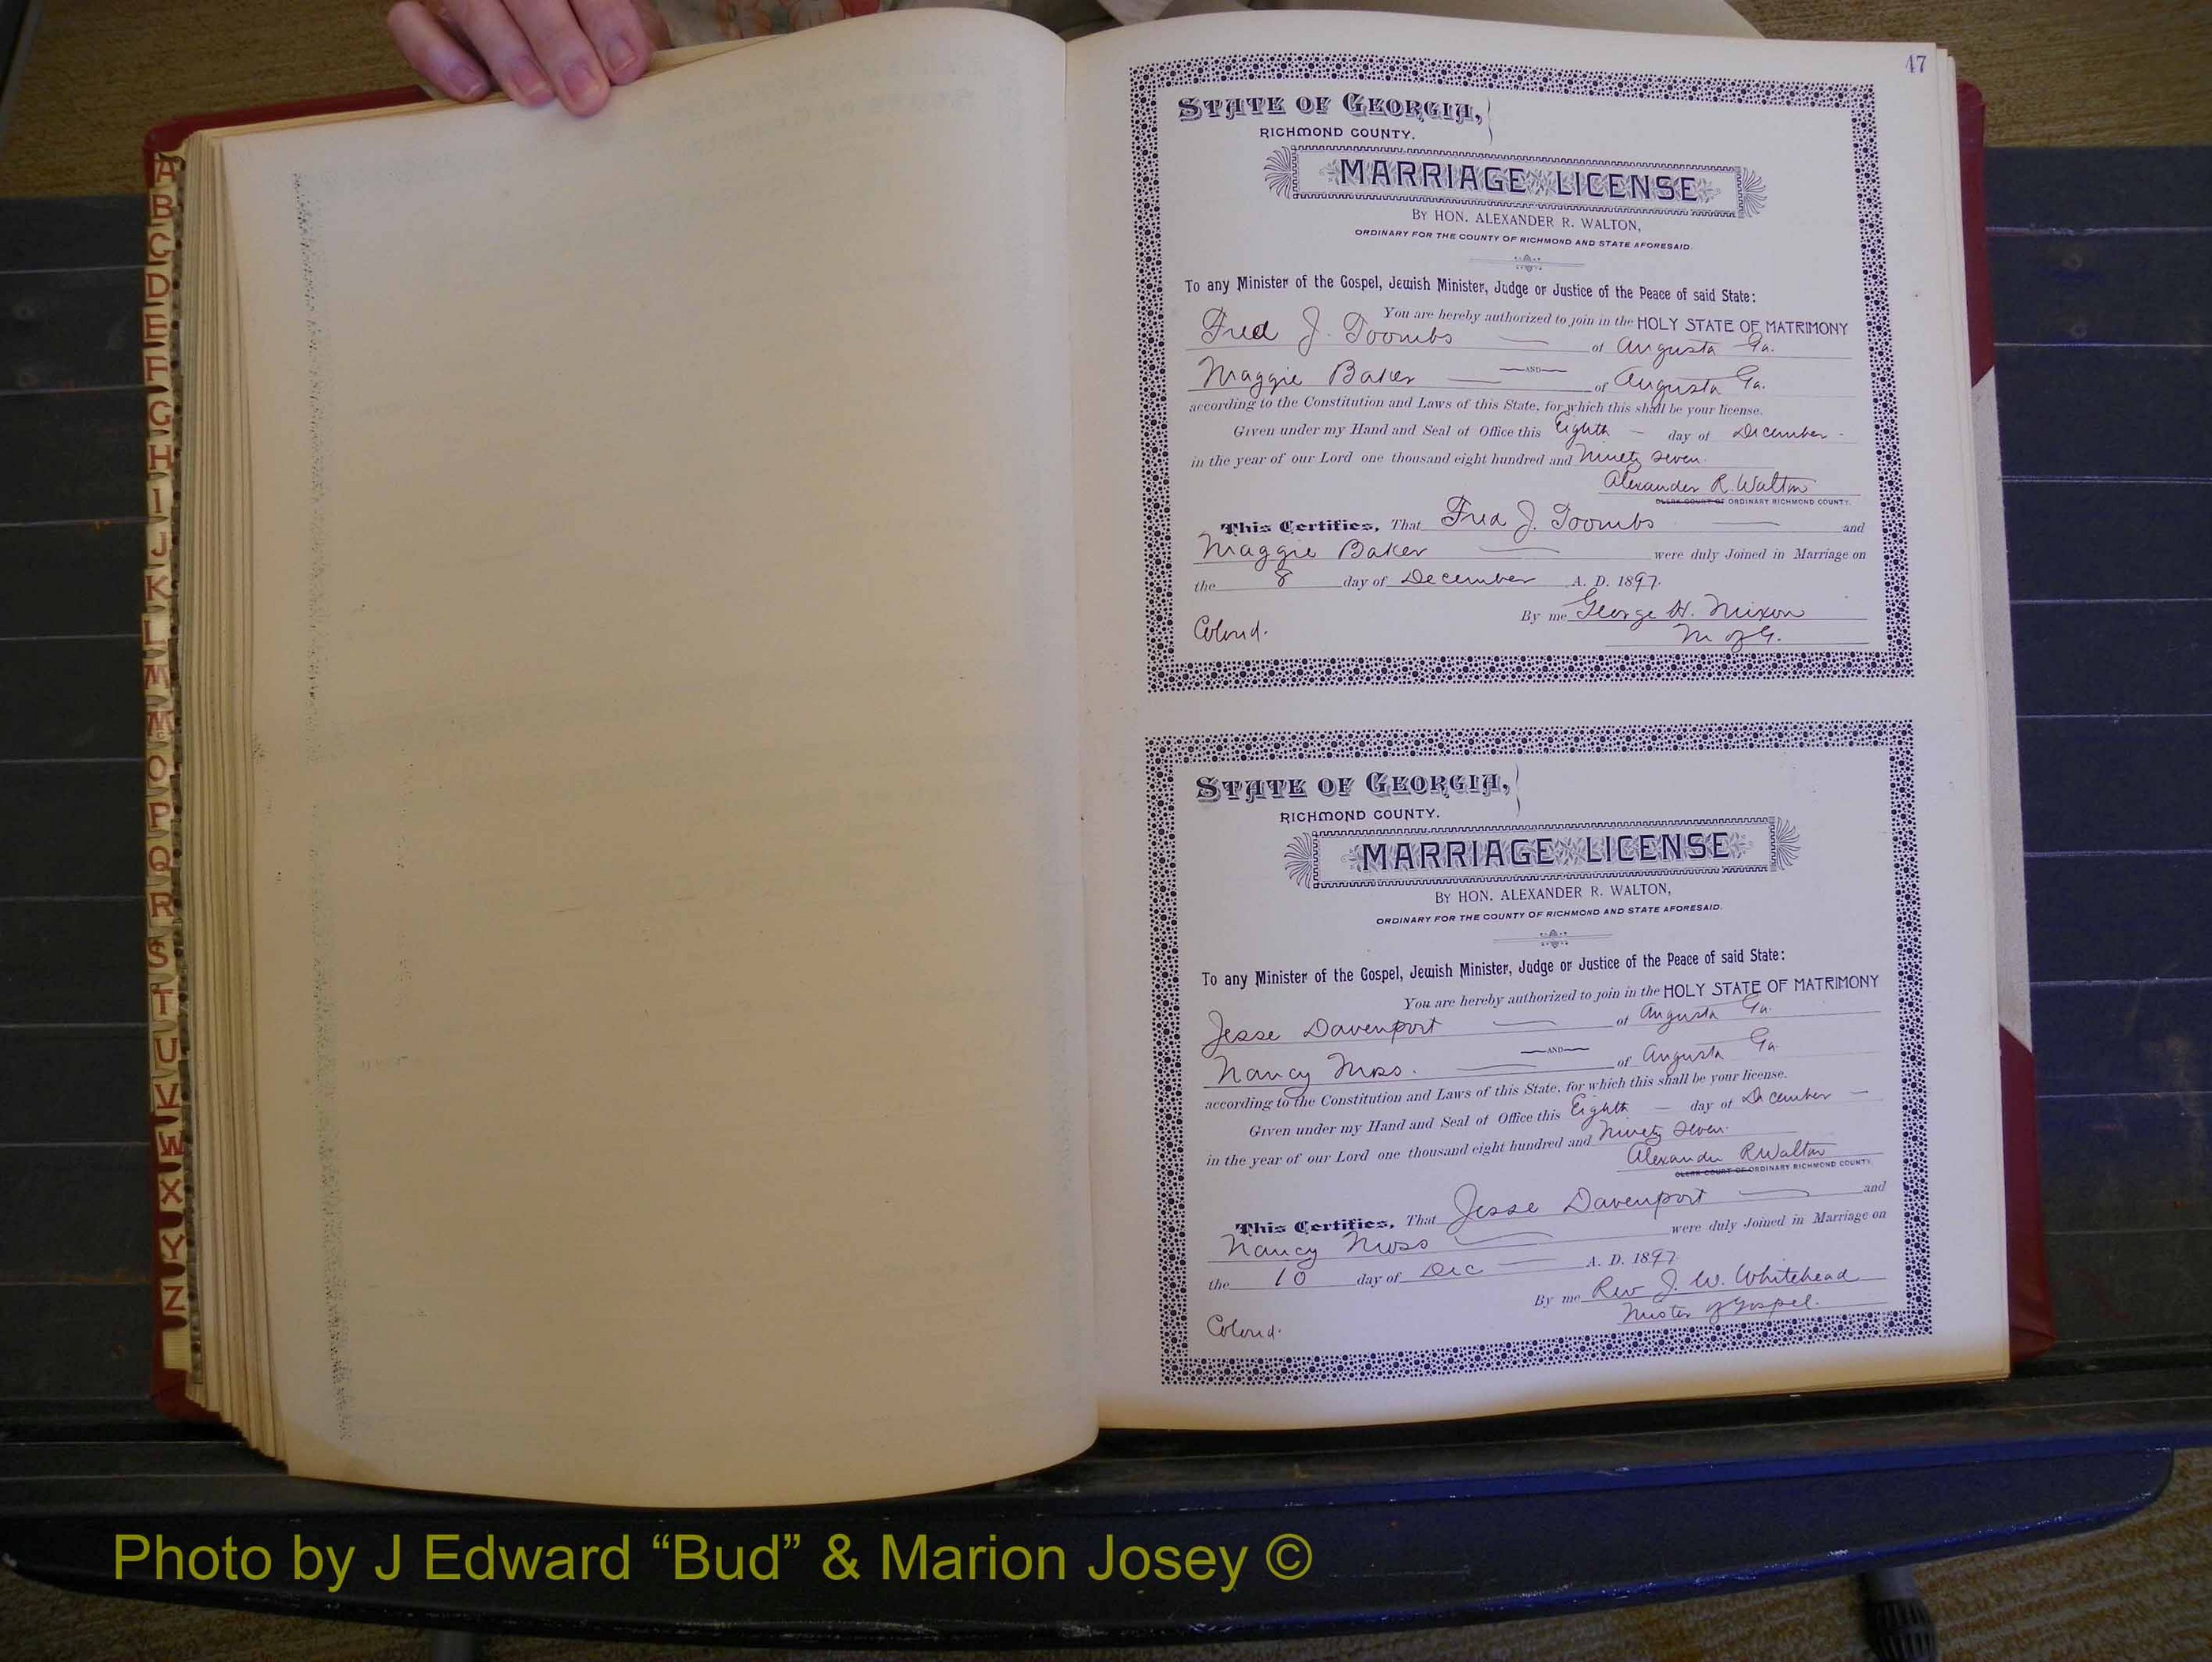 47
STATE OF GEORGIA,
RICHMOND COUNTY.
MARRIAGE LICENSE
BY HON. ALEXANDER R. WALTON,
ORDINARY FOR THE COUNTY OF RICHMOND AND STATE AFORESAID.
To any Minister of the Gospel, Jewish Minister, Judge or Justice of the Peace of said State:
You are hereby authorized to join in the HOLY STATE OF MATRIMONY
Fred J. Toombs of Augusta Ga.
AND
Maggie Baker of Augusta Ga.
according to the Constitution and Laws of this State, for which this shall be your license.
Given under my Hand and Seal of Office this Eighth day of December
in the year of our Lord one thousand eight hundred and Ninety seven.
Alexander R. Walton
CLERK COURT OF ORDINARY RICHMOND COUNTY.
This Certifies, That Fred J. Toombs and
Maggie Baker were duly Joined in Marriage on
the 8 day of December A. D. 1897.
By me George H. Nixon
M of G.
Colord.
STATE OF GEORGIA,
RICHMOND COUNTY.
MARRIAGE LICENSE
BY HON. ALEXANDER R. WALTON,
ORDINARY FOR THE COUNTY OF RICHMOND AND STATE AFORESAID.
To any Minister of the Gospel, Jewish Minister, Judge or Justice of the Peace of said State:
You are hereby authorized to join in the HOLY STATE OF MATRIMONY
Jesse Davenport of Augusta Ga.
AND
Nancy Moss. of Augusta Ga.
according to the Constitution and Laws of this State, for which this shall be your license.
Given under my Hand and Seal of Office this Eighth day of December
in the year of our Lord one thousand eight hundred and Ninety seven.
Alexander R Walton
CLERK COURT OF ORDINARY RICHMOND COUNTY.
This Certifies, That Jesse Davenport and
Nancy Moss were duly Joined in Marriage on
the 10 day of Dec A. D. 1897.
By me Rev J. W. Whitehead
of Gospel.
Colord.
A
B
C
D
E
F
G
H
I
J
K
L
M
Mc
O
P
Q
R
S
T
U
V
W
X
Y
Z
Photo by J Edward “Bud” & Marion Josey ©